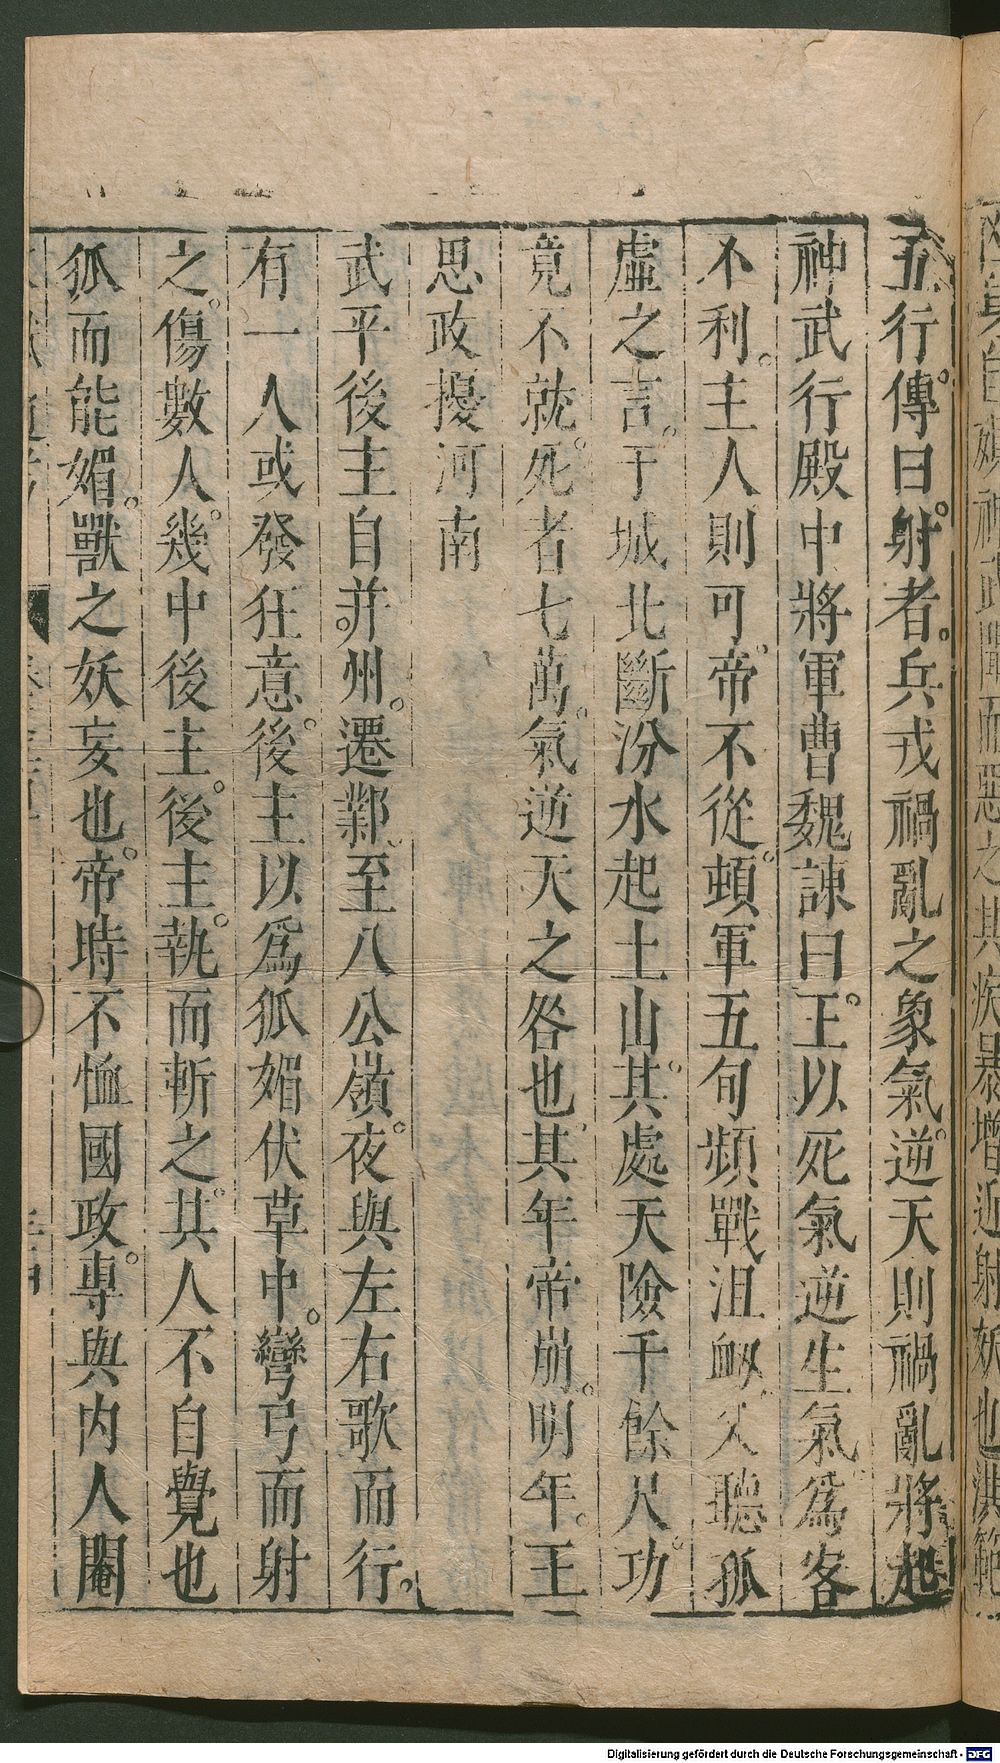 五行傳曰射者兵戎禍亂之象氣逆天則禍亂將起
神武行殿中將軍曹魏諫曰王以死氣逆生氣爲客
不利主人則可帝不從頓軍五旬頻戰沮衂又聽孤
虛之言于城北斷汾水起土山其處天險千餘尺功
竟不就死者七萬氣逆天之咎也其年帝崩明年王
思政擾河南
武平後主自并州遷鄴至八公嶺夜與左右歌而行
有一人或發狂意後主以爲狐媚伏草中彎弓而射
之傷數人幾中後主後主執而斬之其人不自覺也
狐而能媚獸之妖妄也帝時不恤國政專與内人閹
Digitalisierung gefördert durch die Deutsche Forschungsgemeinschaft - DFG